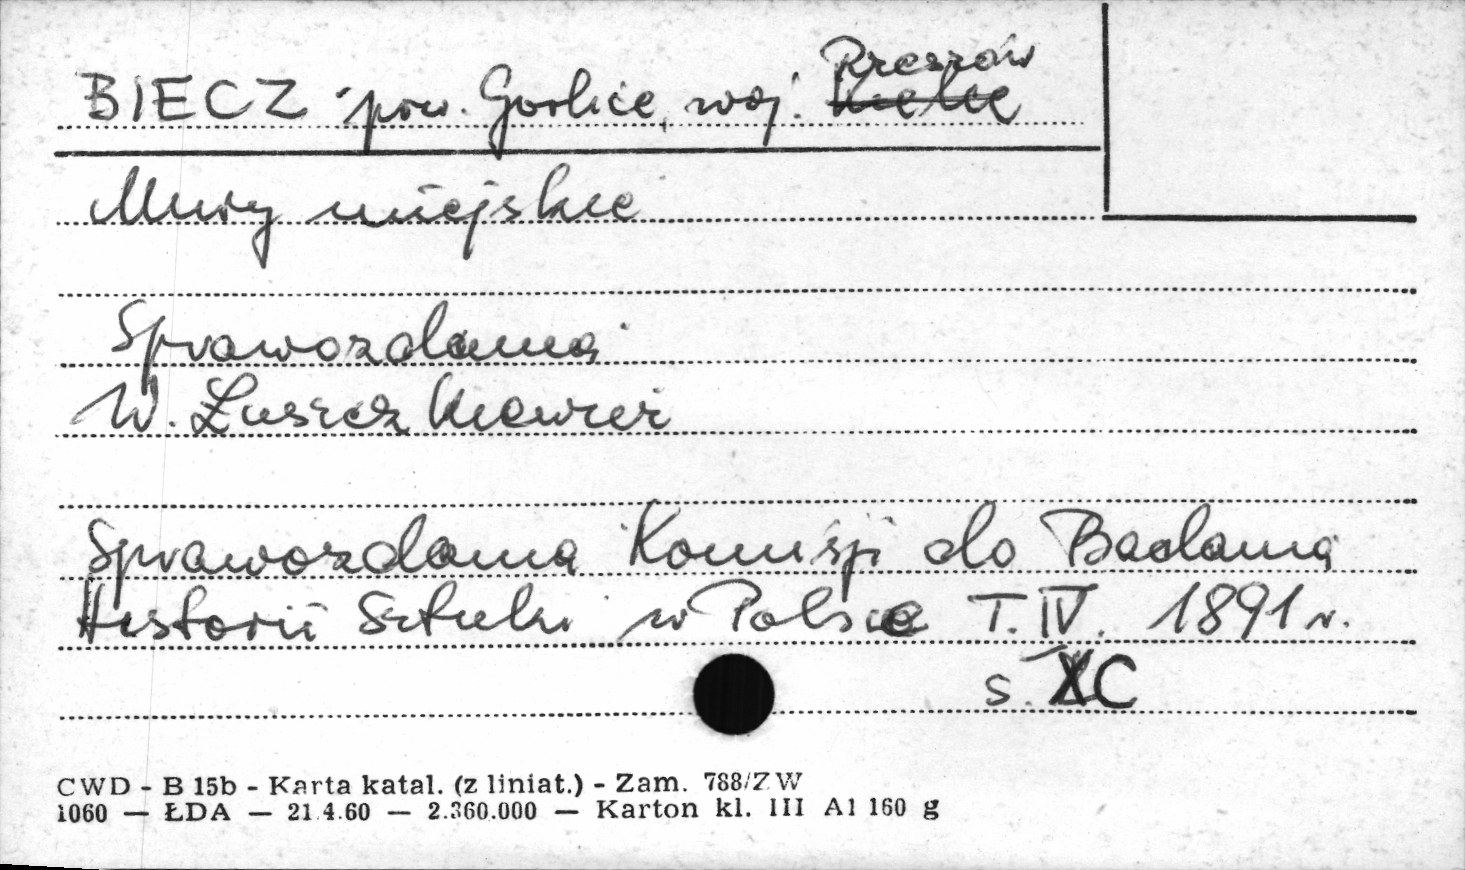 BIECZ pow. Gorlice, woj. Rzeszów Kielce
Mury miejskie
Sprawozdania
W. Łuszczkiewicz
Sprawozdania Komisji do Badania
Historii Sztuki w Polsce T. IV. 1891 r.
s. XC
CWD - B 15b - Karta katal. (z liniat.) - Zam. 788/ZW
1060 — ŁDA — 21.4.60 — 2.360.000 — Karton kl. III A1 160 g